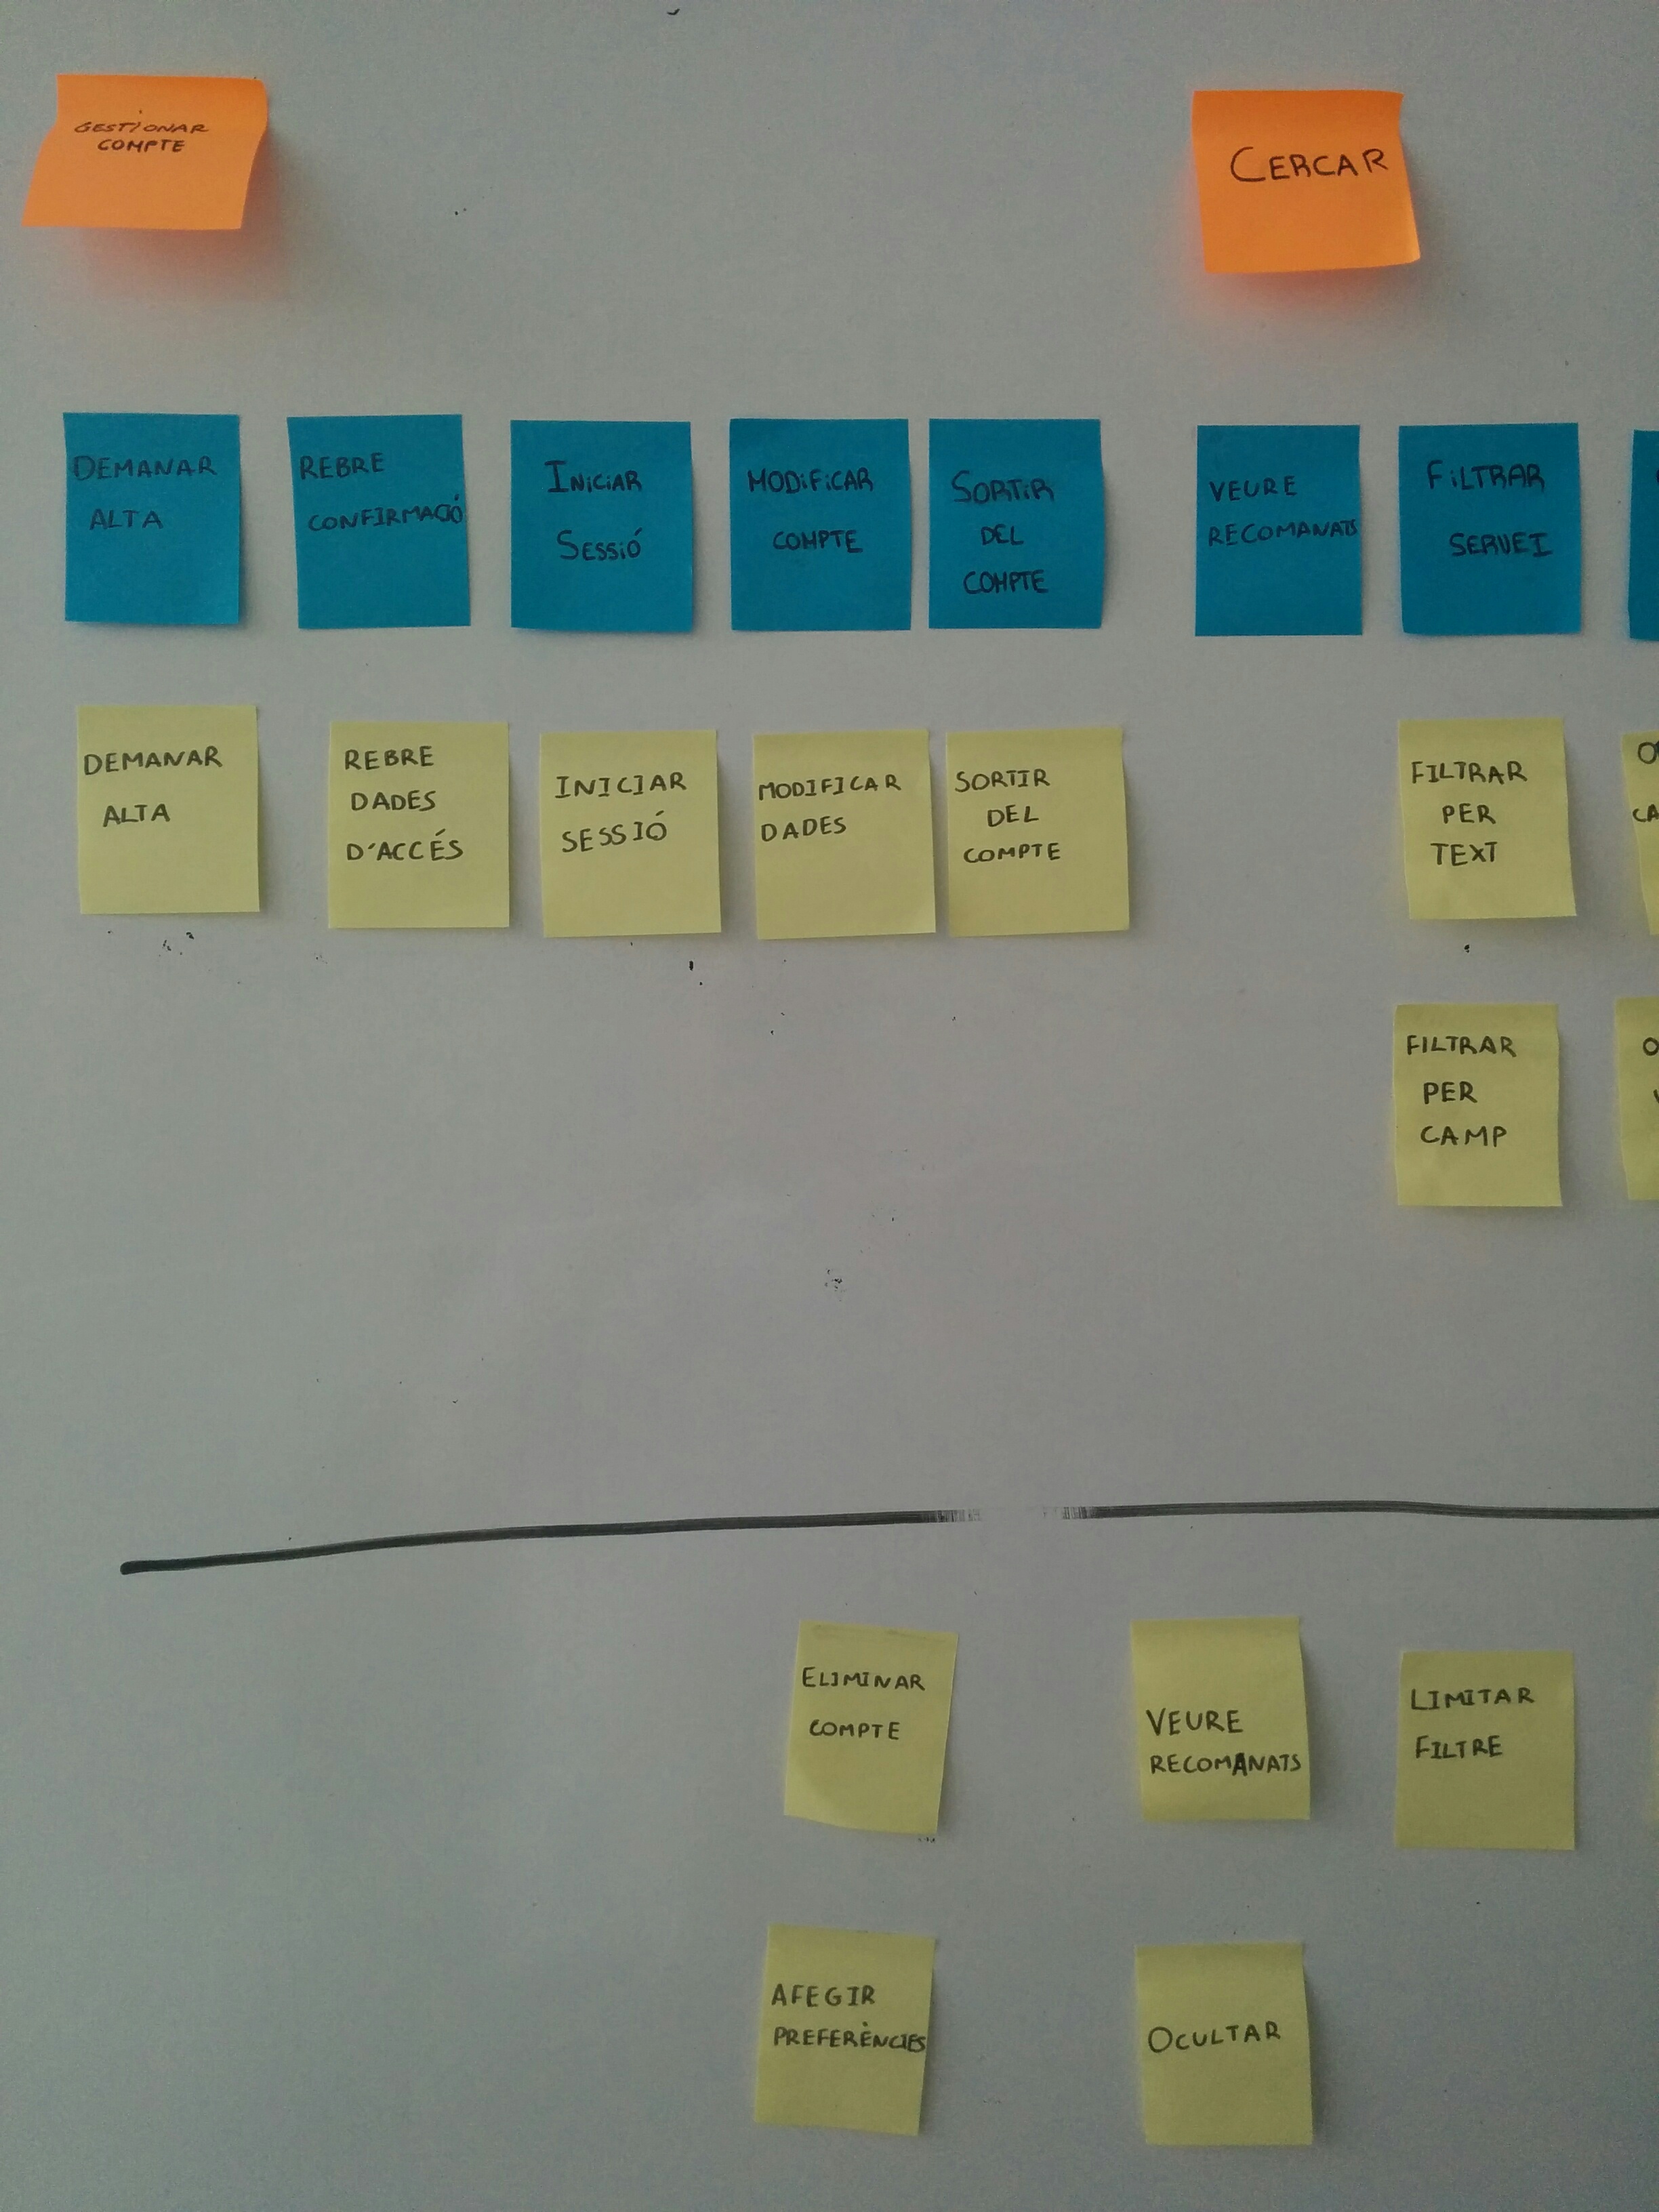 GESTIONAR
COMPTE
CERCAR
DEMANAR
ALTA
REBRE
CONFIRMACIÓ
INICIAR
SESSIÓ
MODIFICAR
COMPTE
SORTIR
DEL
COMPTE
VEURE
RECOMANATS
FILTRAR
SERVEI
DEMANAR
ALTA
REBRE
DADES
D'ACCÉS
INICIAR
SESSIÓ
MODIFICAR
DADES
SORTIR
DEL
COMPTE
FILTRAR
PER
TEXT
FILTRAR
PER
CAMP
ELIMINAR
COMPTE
VEURE
RECOMANATS
LIMITAR
FILTRE
AFEGIR
PREFERÈNCIES
OCULTAR